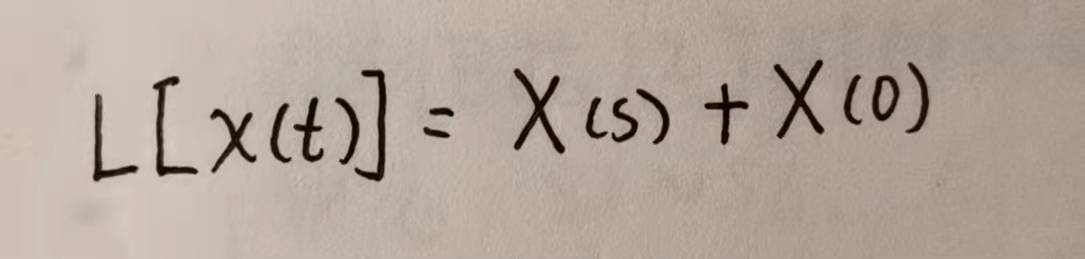 L[x(t)] = X(s) + X(0)